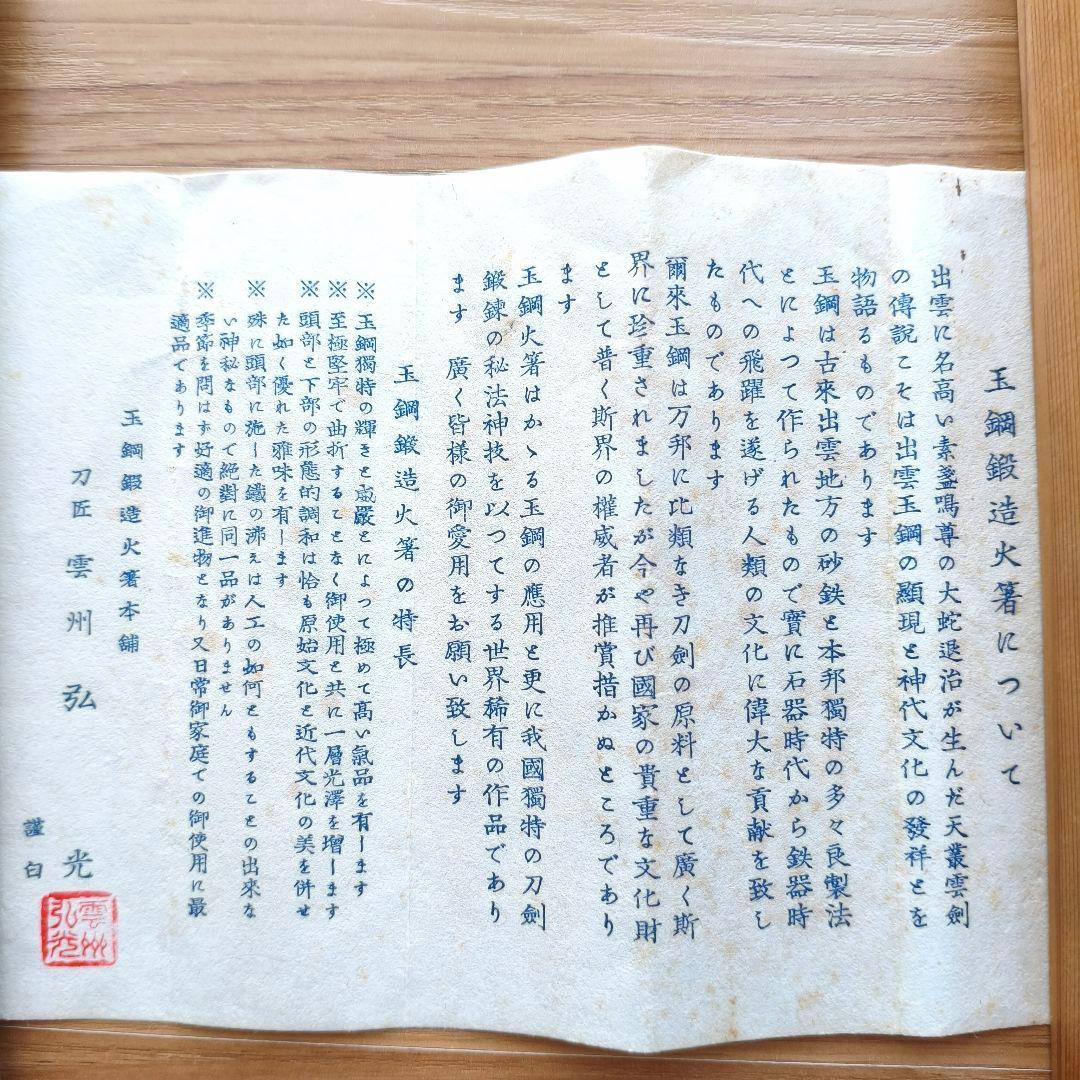 玉鋼鍛造火箸について
出雲に名高い素盞鳴尊の大蛇退治が生んだ天叢雲劍
の傳説こそは出雲玉鋼の顯現と神代文化の發祥とを
物語るものであります
玉鋼は古來出雲地方の砂鉄と本邦獨特の多々良製法
とによつて作られたもので實に石器時代から鉄器時
代への飛躍を遂げる人類の文化に偉大な貢献を致し
たものであります
爾來玉鋼は万邦に比類なき刀劍の原料として廣く斯
界に珍重されましたが今や再び國家の貴重な文化財
として普く斯界の權威者が推賞措かぬところであり
ます
玉鋼火箸はかゝる玉鋼の應用と更に我國獨特の刀劍
鍛錬の秘法神技を以つてする世界稀有の作品であり
ます 廣く皆様の御愛用をお願い致します
玉鋼鍛造火箸の特長
※玉鋼獨特の輝きと威嚴とによつて極めて高い氣品を有します
※至極堅牢で曲折することなく御使用と共に一層光澤を増します
※頭部と下部の形態的調和は恰も原始文化と近代文化の美を併せ
た如く優れた雅味を有します
※殊に頭部に施した鐵の沸えは人工の如何ともすることの出來な
い神秘なもので絶對に同一品がありません
※季節を問はず好適の御進物となり又日常御家庭での御使用に最
適品であります
玉鋼鍛造火箸本舗
刀匠 雲州弘光
謹白
雲州
弘光